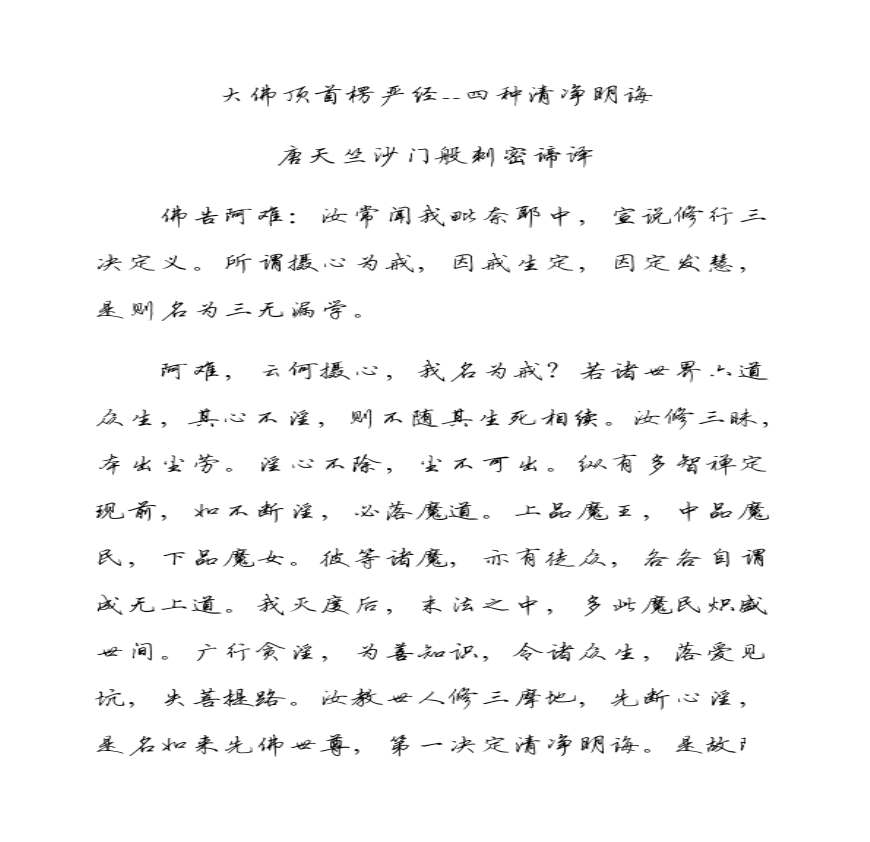 大佛顶首楞严经--四种清净明诲
唐天竺沙门般刺密谛译
佛告阿难：汝常闻我毗奈耶中，宣说修行三
决定义。所谓摄心为戒，因戒生定，因定发慧，
是则名为三无漏学。
阿难，云何摄心，我名为戒？若诸世界六道
众生，其心不淫，则不随其生死相续。汝修三昧，
本出尘劳。淫心不除，尘不可出。纵有多智禅定
现前，如不断淫，必落魔道。上品魔王，中品魔
民，下品魔女。彼等诸魔，亦有徒众，各各自谓
成无上道。我灭度后，末法之中，多此魔民炽盛
世间。广行贪淫，为善知识，令诸众生，落爱见
坑，失菩提路。汝教世人修三摩地，先断心淫，
是名如来先佛世尊，第一决定清净明诲。是故